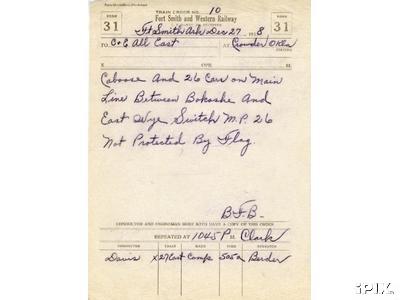 TRAIN ORDER NO. 10
FORM 31
Fort Smith and Western Railway
FORM 31
Ft Smith Ark Dec 27 1918
TO C+E All East
AT Crowder Okla
X OPR. M.
Caboose And 26 Cars on Main
Line Between Bokoshe And
East Wye Switch M.P. 26
Not Protected By Flag.
B.F.B.
CONDUCTOR AND ENGINEMAN MUST BOTH HAVE A COPY OF THIS ORDER
REPEATED AT 1045 P M. Clark
CONDUCTOR TRAIN MADE TIME OPERATOR
Davis X27 East Comp 505a
iPIX